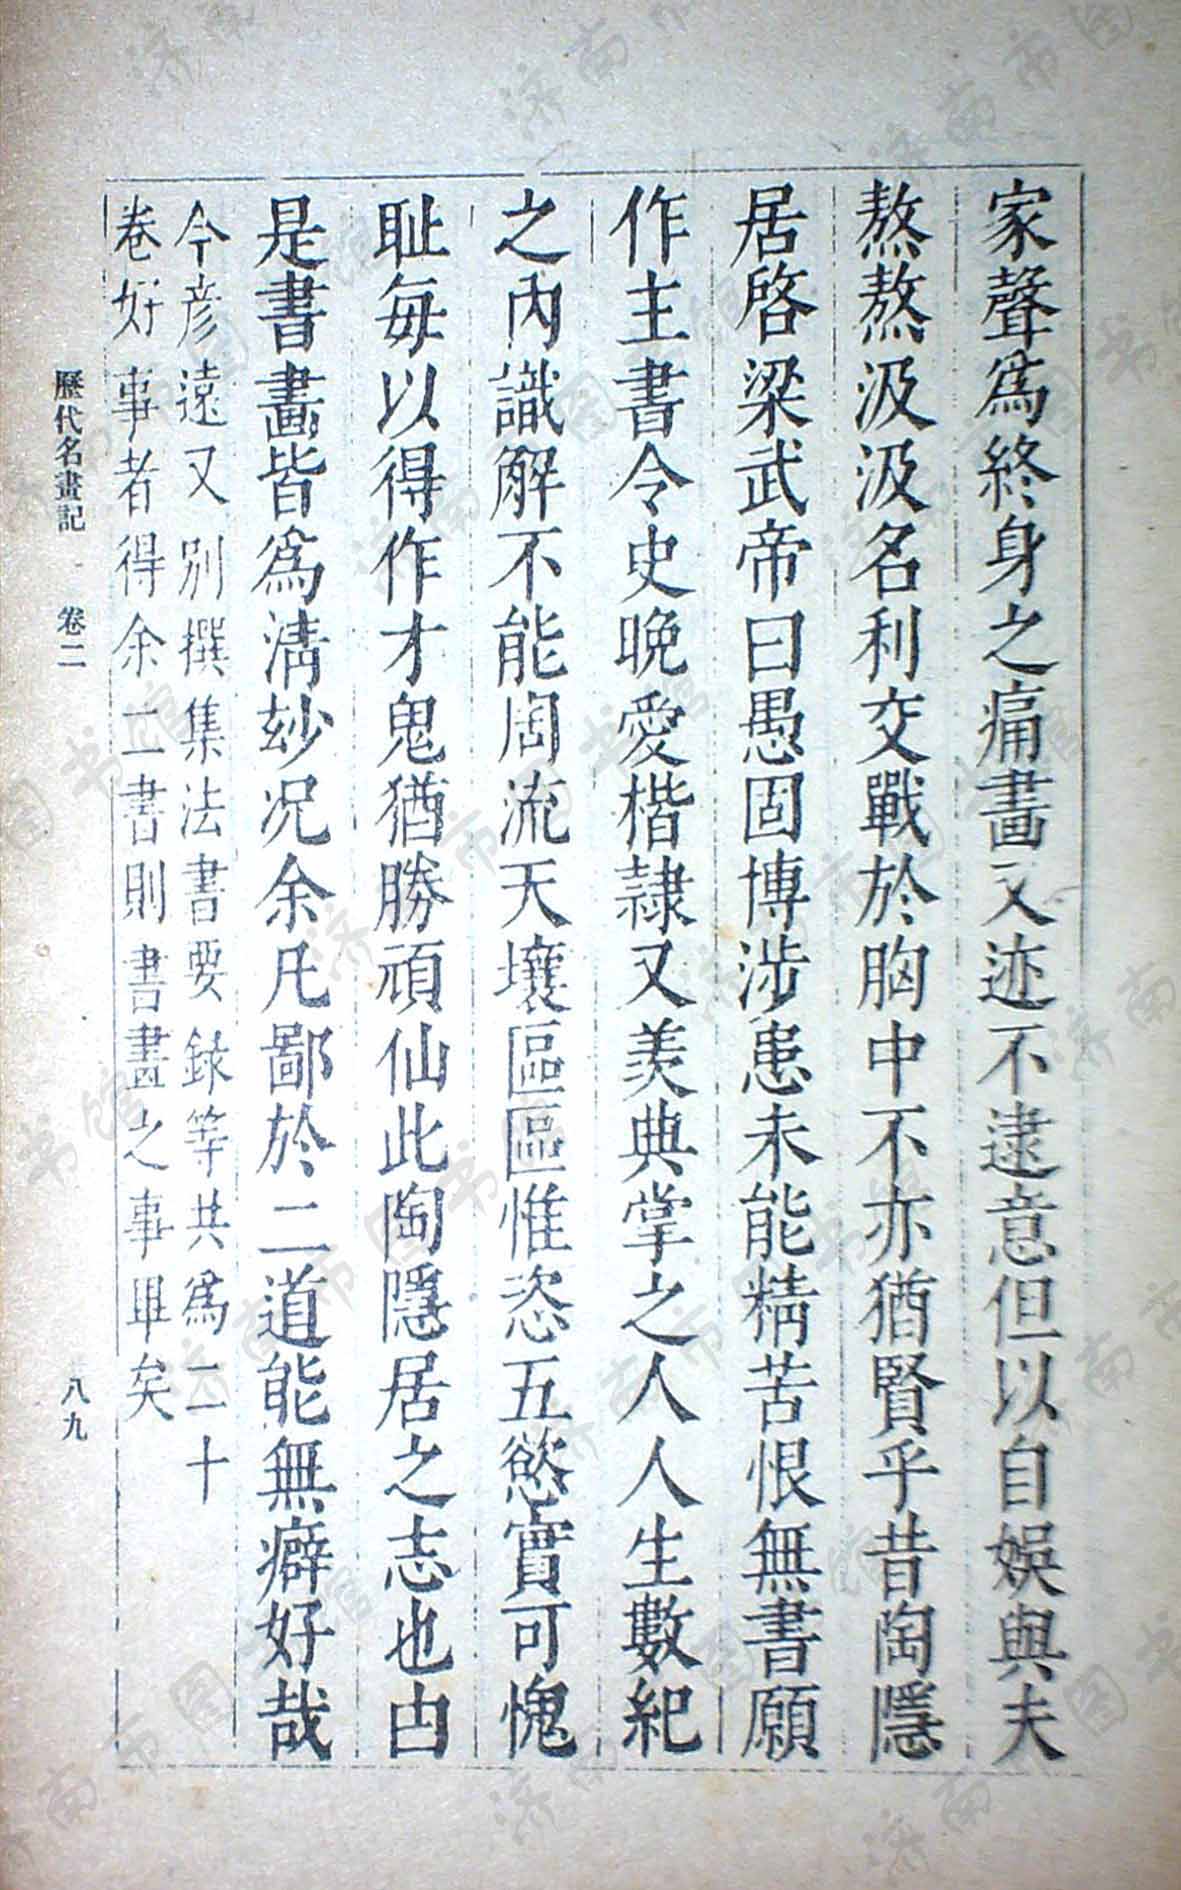 家聲爲終身之痛畫又迹不逮意但以自娛與夫
熬熬汲汲名利交戰於胸中不亦猶賢乎昔陶隱
居啓梁武帝曰愚固博涉患未能精苦恨無書願
作主書令史晚愛楷隷又羨典掌之人人生數紀
之內識解不能周流天壤區區惟恣五慾實可愧
耻每以得作才鬼猶勝頑仙此陶隱居之志也由
是書畫皆爲淸玅况余凡鄙於二道能無癖好哉
今彦遠又別撰集法書要錄等共爲二十
卷好事者得余二書則書畫之事畢矣
歷代名畫記 卷二 八九
济南市图书馆